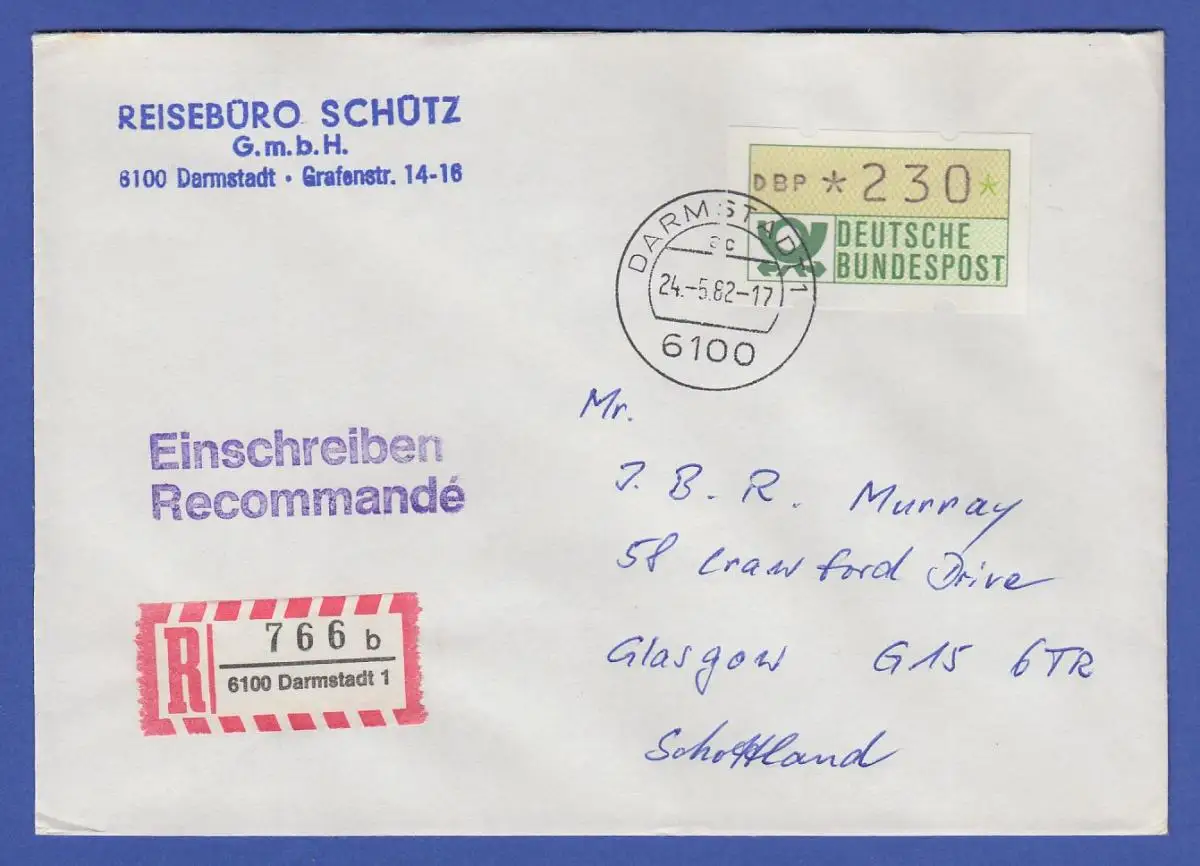 REISEBÜRO SCHÜTZ
G.m.b.H.
6100 Darmstadt • Grafenstr. 14-16
DBP *230*
DEUTSCHE
BUNDESPOST
DARMSTADT 1
ac
24.-5.82-17
6100
Einschreiben
Recommandé
R
766 b
6100 Darmstadt 1
Mr.
J. B. R. Murray
58 Crawford Drive
Glasgow G15 6TR
Schottland